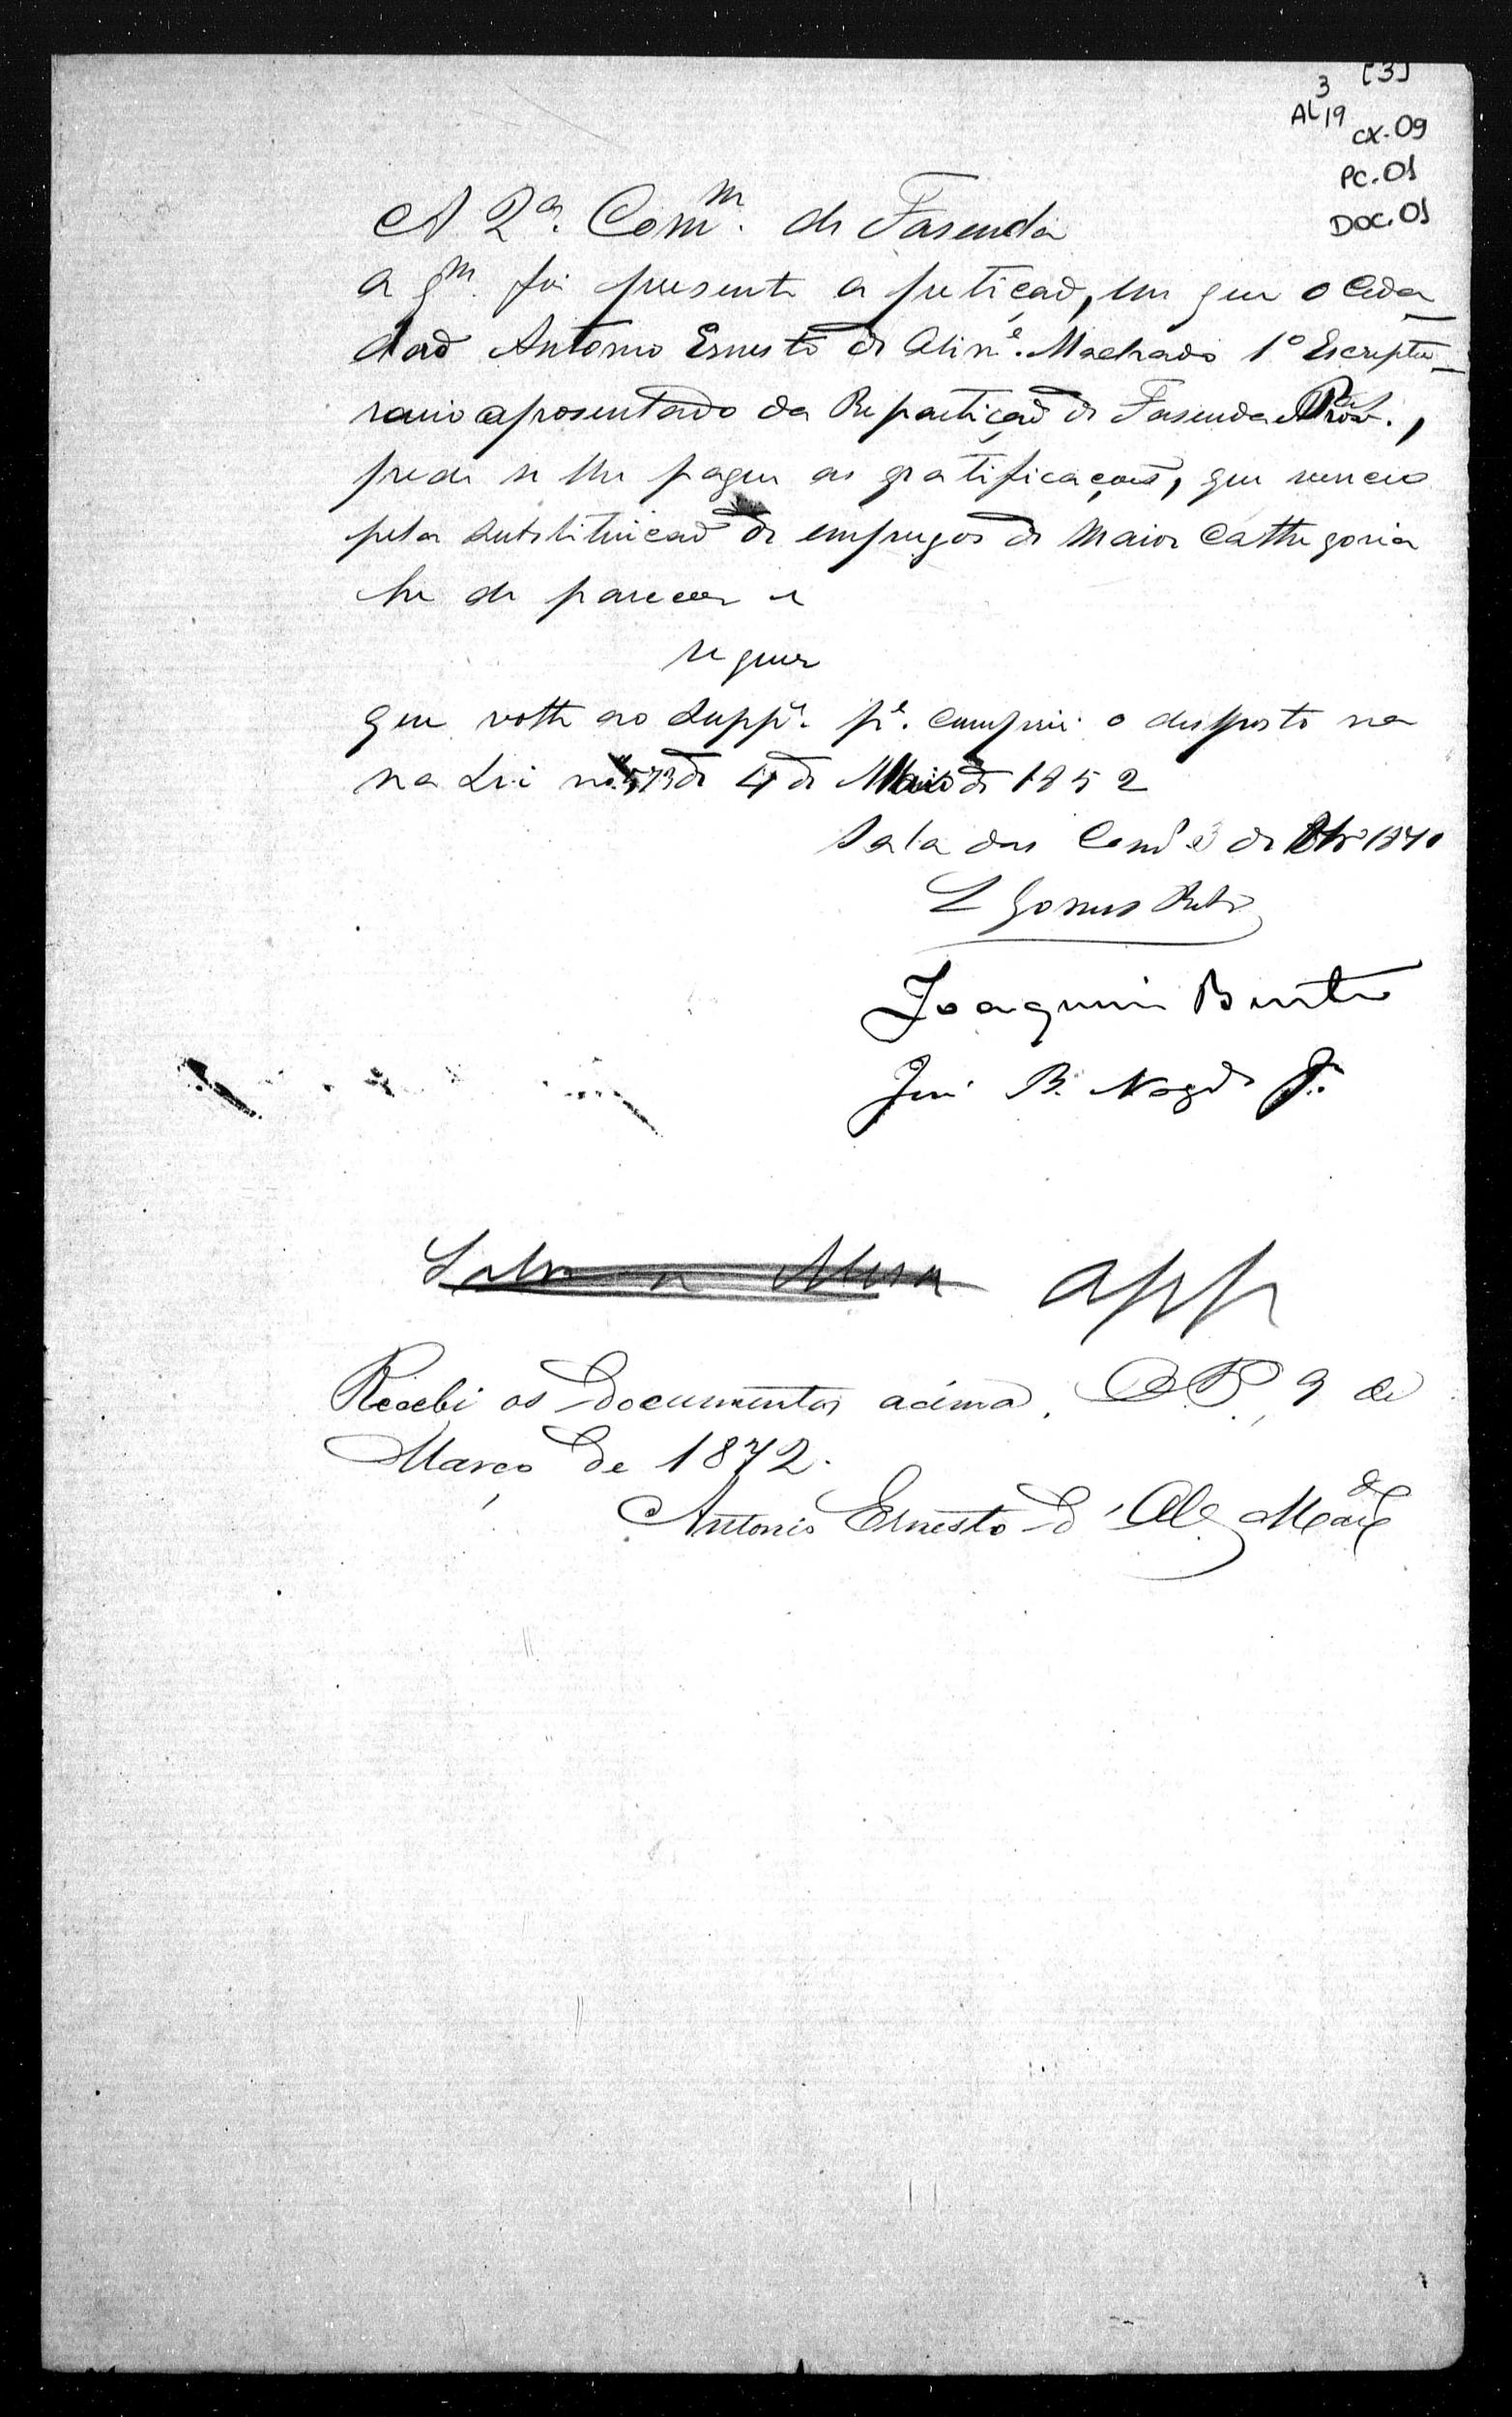 3 [3]
AL 19
CX-09
PC.01
DOC.01
A 2ª. Comm. de Fasenda
a qm. foi presente a petiçaõ, em que o Cida
daõ Antonio Ernesto de Machado 1º Escriptu-
rario aposentado da Repartiçaõ de Fasenda,
pede se lhe pague as gratificações, que venceo
pela substituicaõ de empregos de maior Cathegoria
he de parecer e
requer
que volte ao Suppe. pª. cumprir o disposto na
na Lei no. 573 de 4 de Maio de 1852
Sala das de 1870
L Gomes
Joaquim Bento
José B. Nogª Jr.
Sobre a Mesa app
Recebi os documentos acima. O.P. 9 de
Março de 1872.
Antonio Ernesto d'